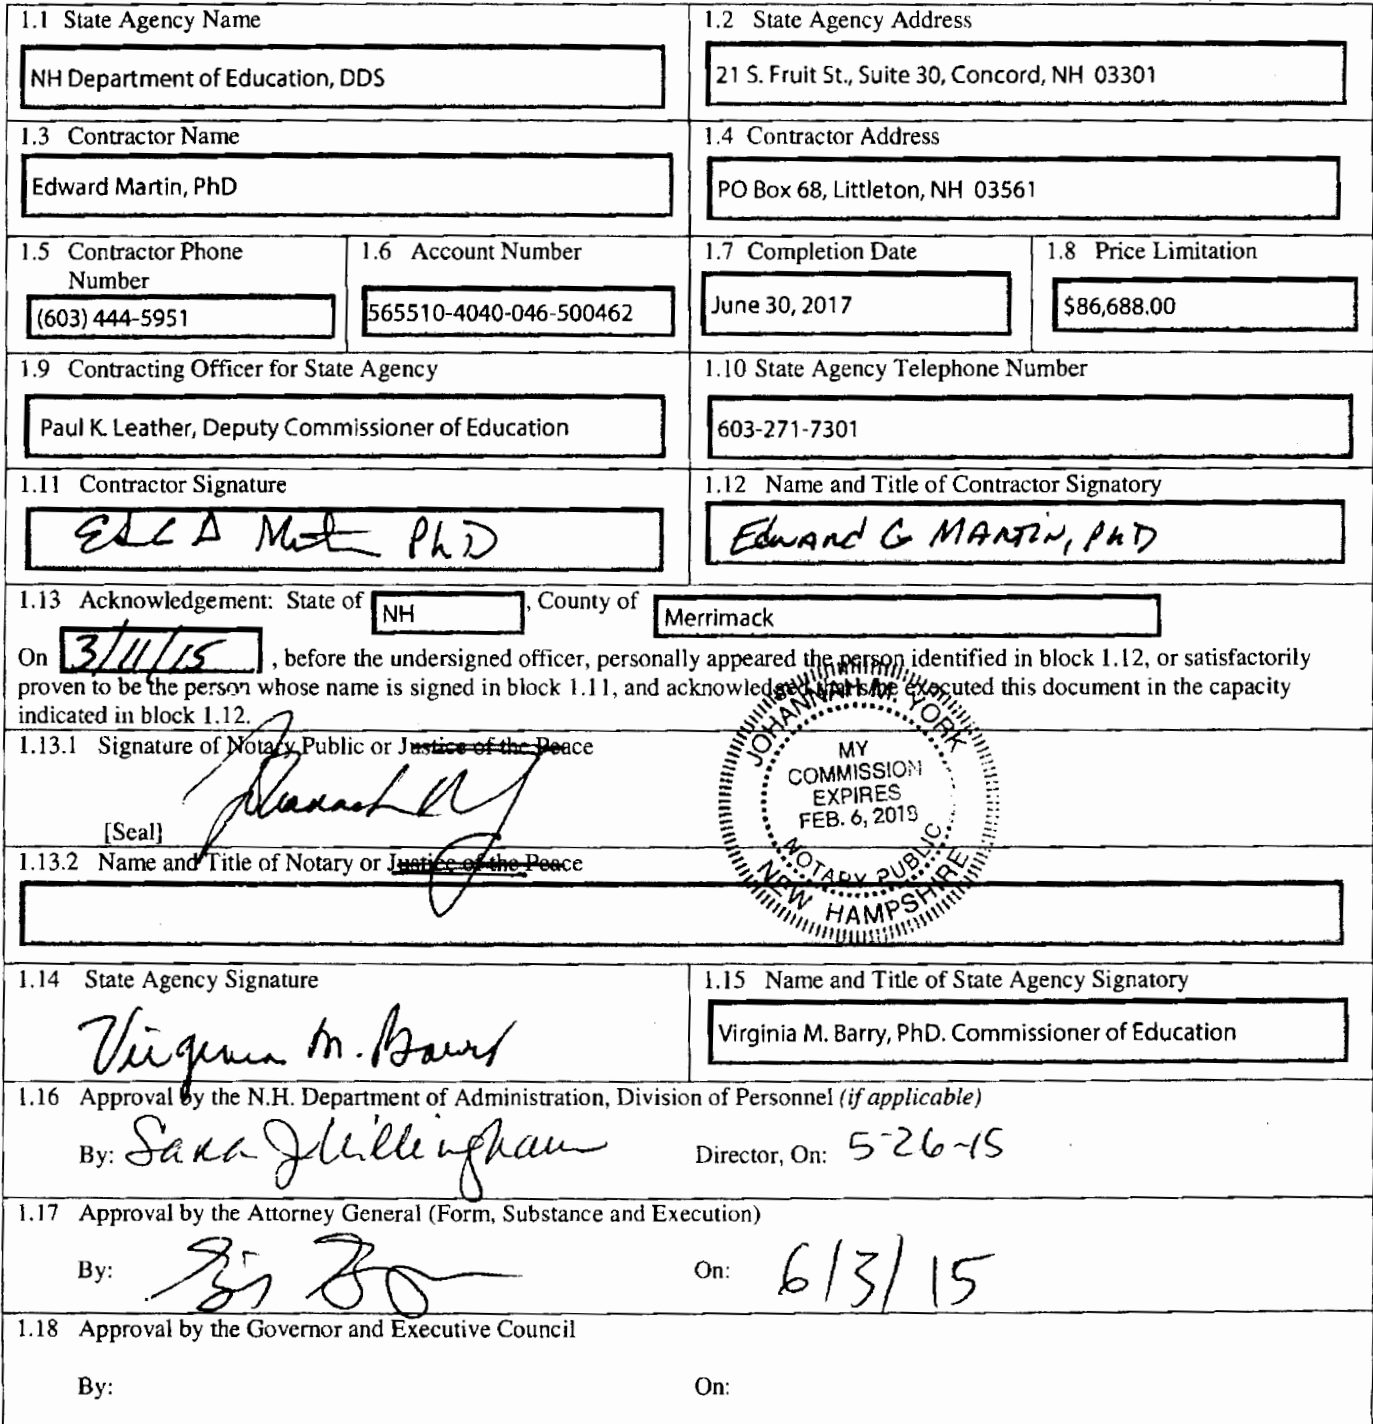 1.1 State Agency Name
NH Department of Education, DDS
1.2 State Agency Address
21 S. Fruit St., Suite 30, Concord, NH 03301
1.3 Contractor Name
Edward Martin, PhD
1.4 Contractor Address
PO Box 68, Littleton, NH 03561
1.5 Contractor Phone
Number
(603) 444-5951
1.6 Account Number
565510-4040-046-500462
1.7 Completion Date
June 30, 2017
1.8 Price Limitation
$86,688.00
1.9 Contracting Officer for State Agency
Paul K. Leather, Deputy Commissioner of Education
1.10 State Agency Telephone Number
603-271-7301
1.11 Contractor Signature
Martin PhD
1.12 Name and Title of Contractor Signatory
Edward G MARTIN, PhD
1.13 Acknowledgement: State of NH, County of Merrimack
On 3/11/15, before the undersigned officer, personally appeared the person identified in block 1.12, or satisfactorily
proven to be the person whose name is signed in block 1.11, and acknowledged that s/he executed this document in the capacity
indicated in block 1.12.
1.13.1 Signature of Notary Public or Justice of the Peace
[Seal]
JOHANNAH M. YORK
MY
COMMISSION
EXPIRES
FEB. 6, 2018
NOTARY PUBLIC
NEW HAMPSHIRE
1.13.2 Name and Title of Notary or Justice of the Peace
1.14 State Agency Signature
Virginia M. Barry
1.15 Name and Title of State Agency Signatory
Virginia M. Barry, PhD. Commissioner of Education
1.16 Approval by the N.H. Department of Administration, Division of Personnel (if applicable)
By: Sara J Willingham
Director, On: 5-26-15
1.17 Approval by the Attorney General (Form, Substance and Execution)
By:
On: 6/3/15
1.18 Approval by the Governor and Executive Council
By:
On: